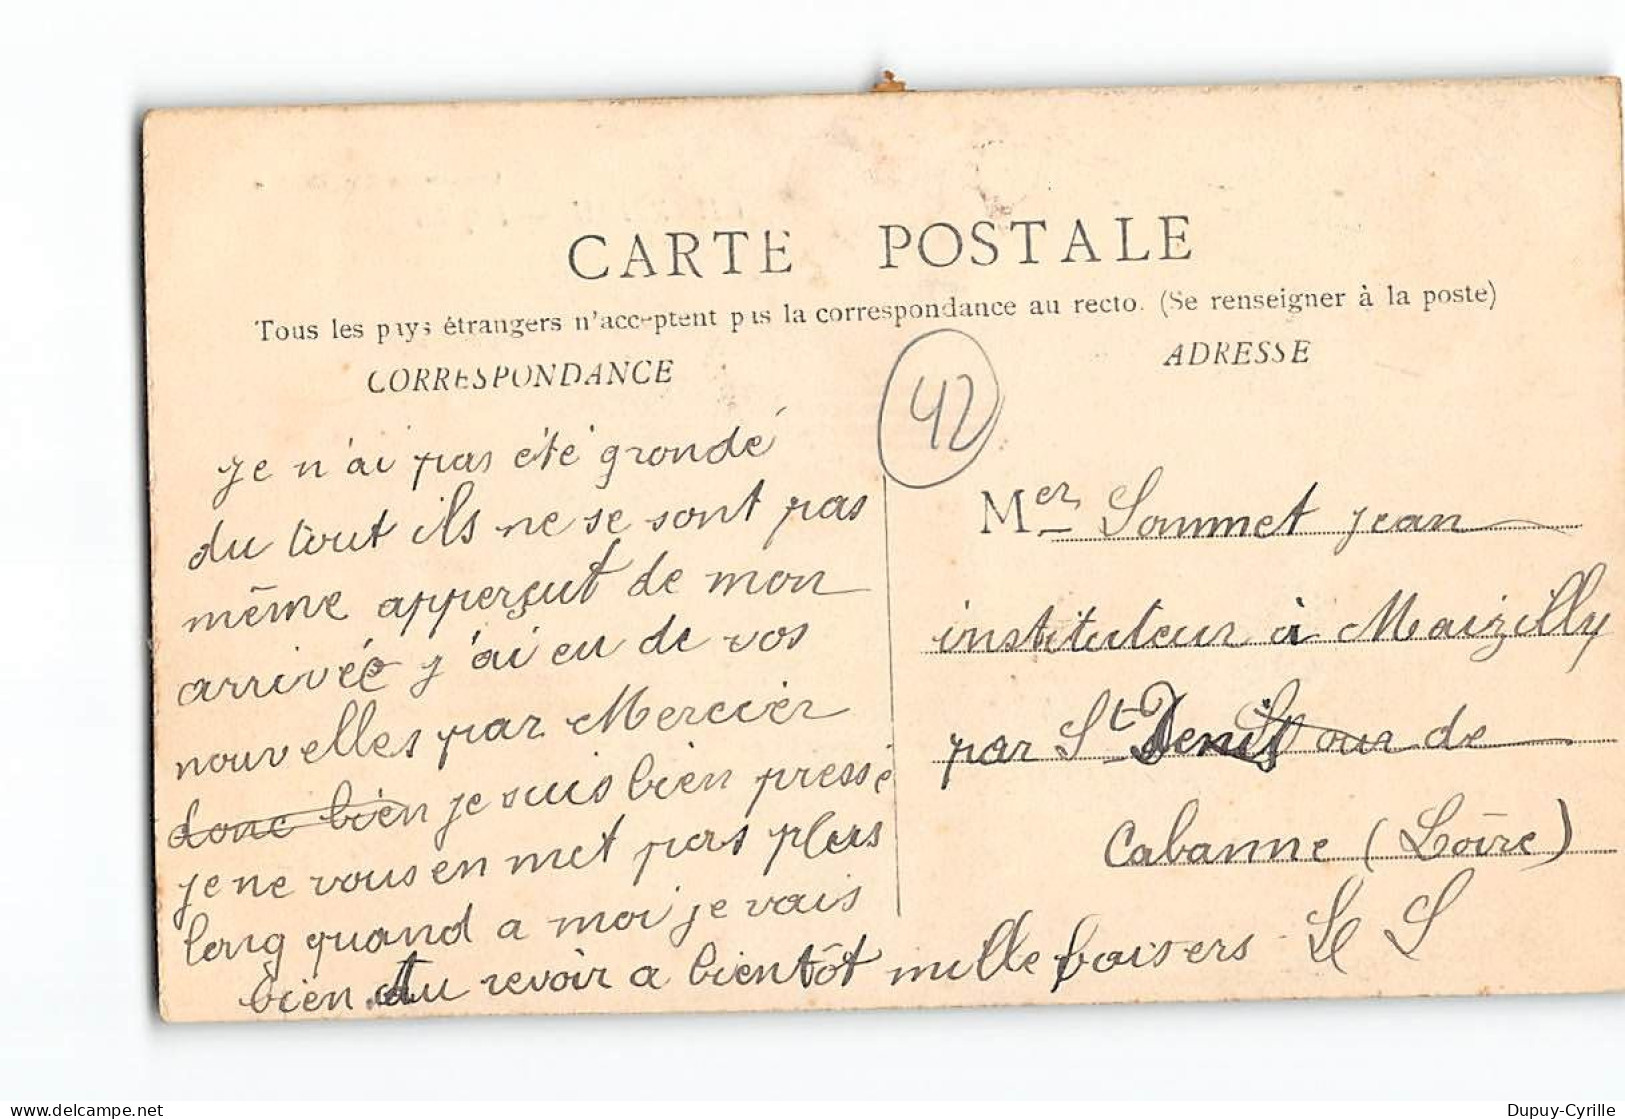 CARTE POSTALE
Tous les pays étrangers n'acceptent pas la correspondance au recto. (Se renseigner à la poste)
CORRESPONDANCE
je n'ai pas été grondé
du tout ils ne se sont pas
même apperçut de mon
arrivée j'ai eu de vos
nouvelles par Mercier
donc bien je suis bien pressé
je ne vous en met pas plus
long quand a moi je vais
bien Au revoir a bientôt mille baisers
42
ADRESSE
Mer Sommet jean
instituteur à Maizilly
par St Denis sour de
Cabanne (Loire)
Dupuy-Cyrille